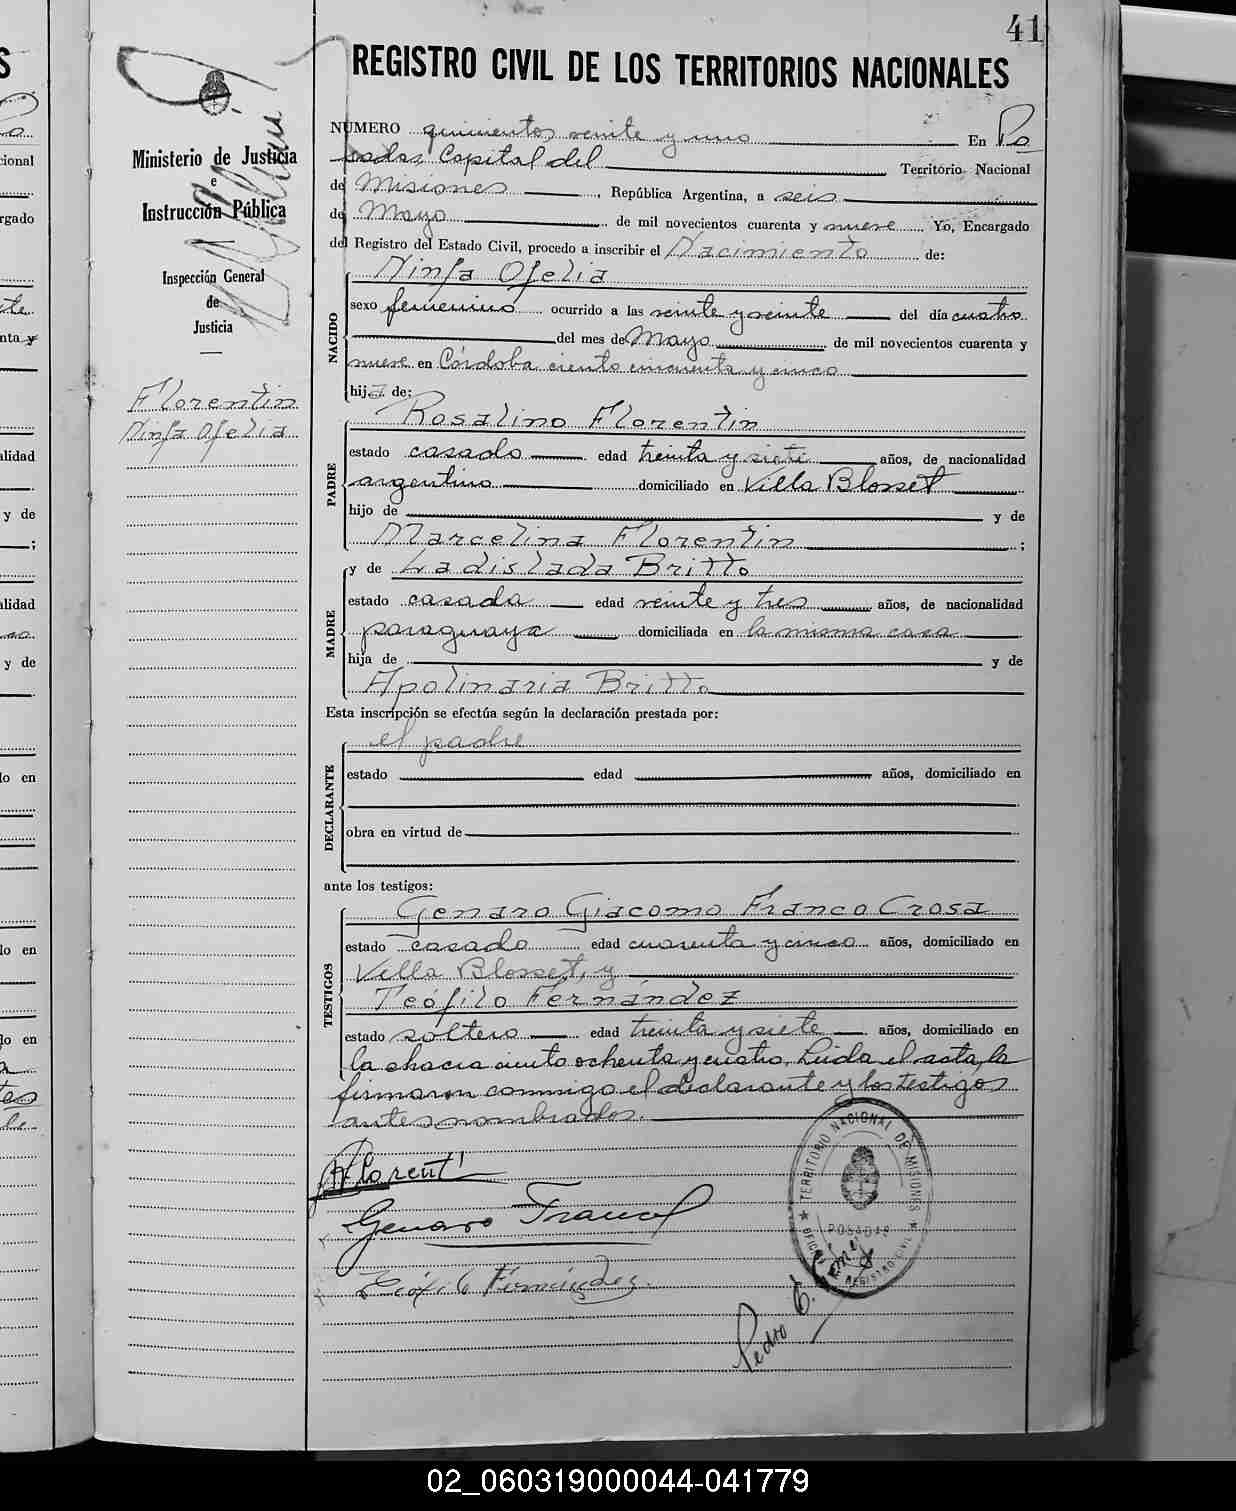 41
REGISTRO CIVIL DE LOS TERRITORIOS NACIONALES
Ministerio de Justicia
e
Instrucción Pública
Inspección General
de
Justicia
Florentin
Ninfa Ofelia
NUMERO quinientos veinte y uno En Po
sadas Capital del Territorio Nacional
de Misiones, República Argentina, a seis
de Mayo de mil novecientos cuarenta y nueve Yo, Encargado
del Registro del Estado Civil, procedo a inscribir el Nacimiento de:
NACIDO
Ninfa Ofelia
sexo femenino ocurrido a las veinte y veinte del día cuatro
del mes de Mayo de mil novecientos cuarenta y
nueve en Córdoba ciento cincuenta y cinco
hija de:
PADRE
Rosalino Florentin
estado casado edad treinta y siete años, de nacionalidad
argentino domiciliado en Villa Blosset
hijo de y de
Marcelina Florentin ;
MADRE
y de Ladislada Britto
estado casada edad veinte y tres años, de nacionalidad
paraguaya domiciliada en la misma casa
hija de y de
Apolinaria Britto
Esta inscripción se efectúa según la declaración prestada por:
DECLARANTE
el padre
estado edad años, domiciliado en
obra en virtud de
ante los testigos:
TESTIGOS
Genaro Giacomo Franco Crosa
estado casado edad cuarenta y cinco años, domiciliado en
Villa Blosset, y
Teófilo Fernández
estado soltero edad treinta y siete años, domiciliado en
la chacra ciento ochenta y cuatro. Leida el acta, la
firmaron conmigo el declarante y los testigos
antes nombrados.
R Florentí
Genaro Franco
Teófilo Fernández.
TERRITORIO NACIONAL DE MISIONES
POSADAS
REGISTRO CIVIL
Pedro E.
02_060319000044-041779